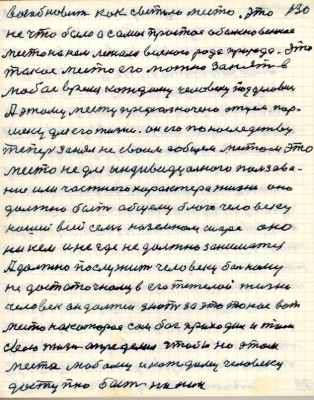 возобновит как светилы место. Это 130
не что было а самое простое обыкновенное
место на нем лежала всякого рода природа. Это
такое место его можно занят в
любое время каждому человеку под условии
А этому месту предназначено отцем Пор-
шеку для его жизни. он его по последству
тепер занял не своим а общем местом это
место не для индивидуалного ползова-
ние или частного характера жизни оно
должно быть общему благо человеку
нашей всей сем на земном шаре оно
ни кем и не где не должно заниматся
А должно послужит человеку бол ному
не достаточному в его тяжелой жизни
человек он должен знать за это тонае вот
место на которое сам бог приходил и там
свою жизн определил чтобы на этом
месте любому и каждому человеку
доступно быть на ним